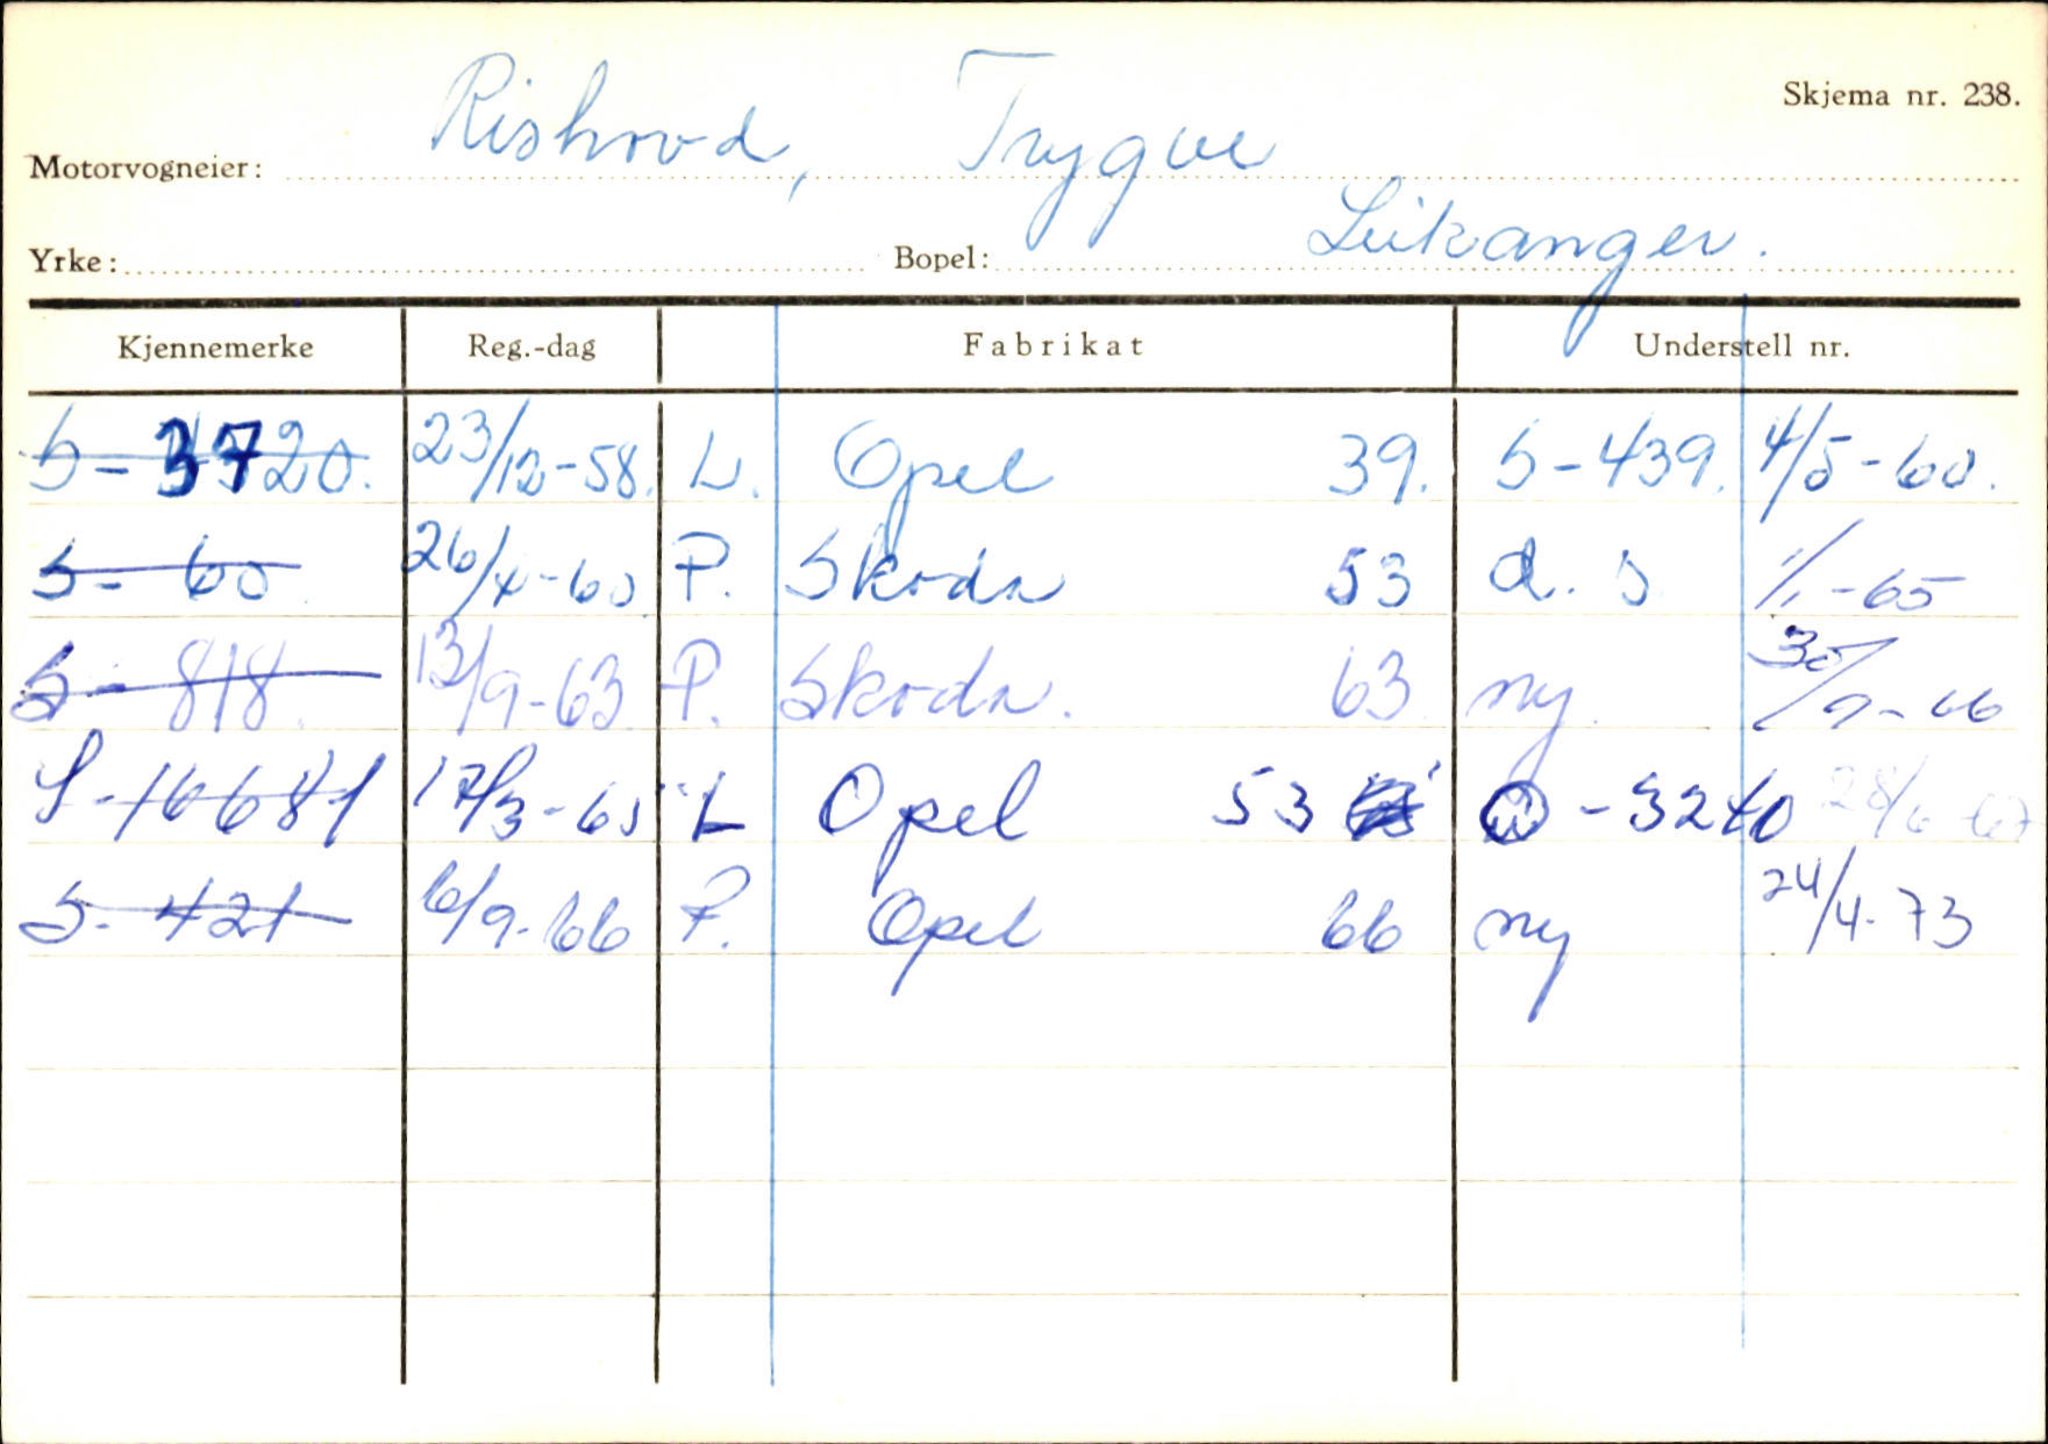 Skjema nr. 238.
Motorvogneier: Rishovd, Trygve
Yrke: Bopel: Leikanger.
Kjennemerke Reg.-dag Fabrikat Understell nr.
S-3720. 23/12-58. L. Opel 39. S-439. 4/5-60.
S-60 26/4-60 P. Skoda 53 d.s 1/1-65
S-818. 13/9-63 P. Skoda. 63 ny. 30/9-66
S-16681 17/3-65 L Opel 53 -3240 28/6-67
S-421 6/9-66 P. Opel 66 ny 24/4-73